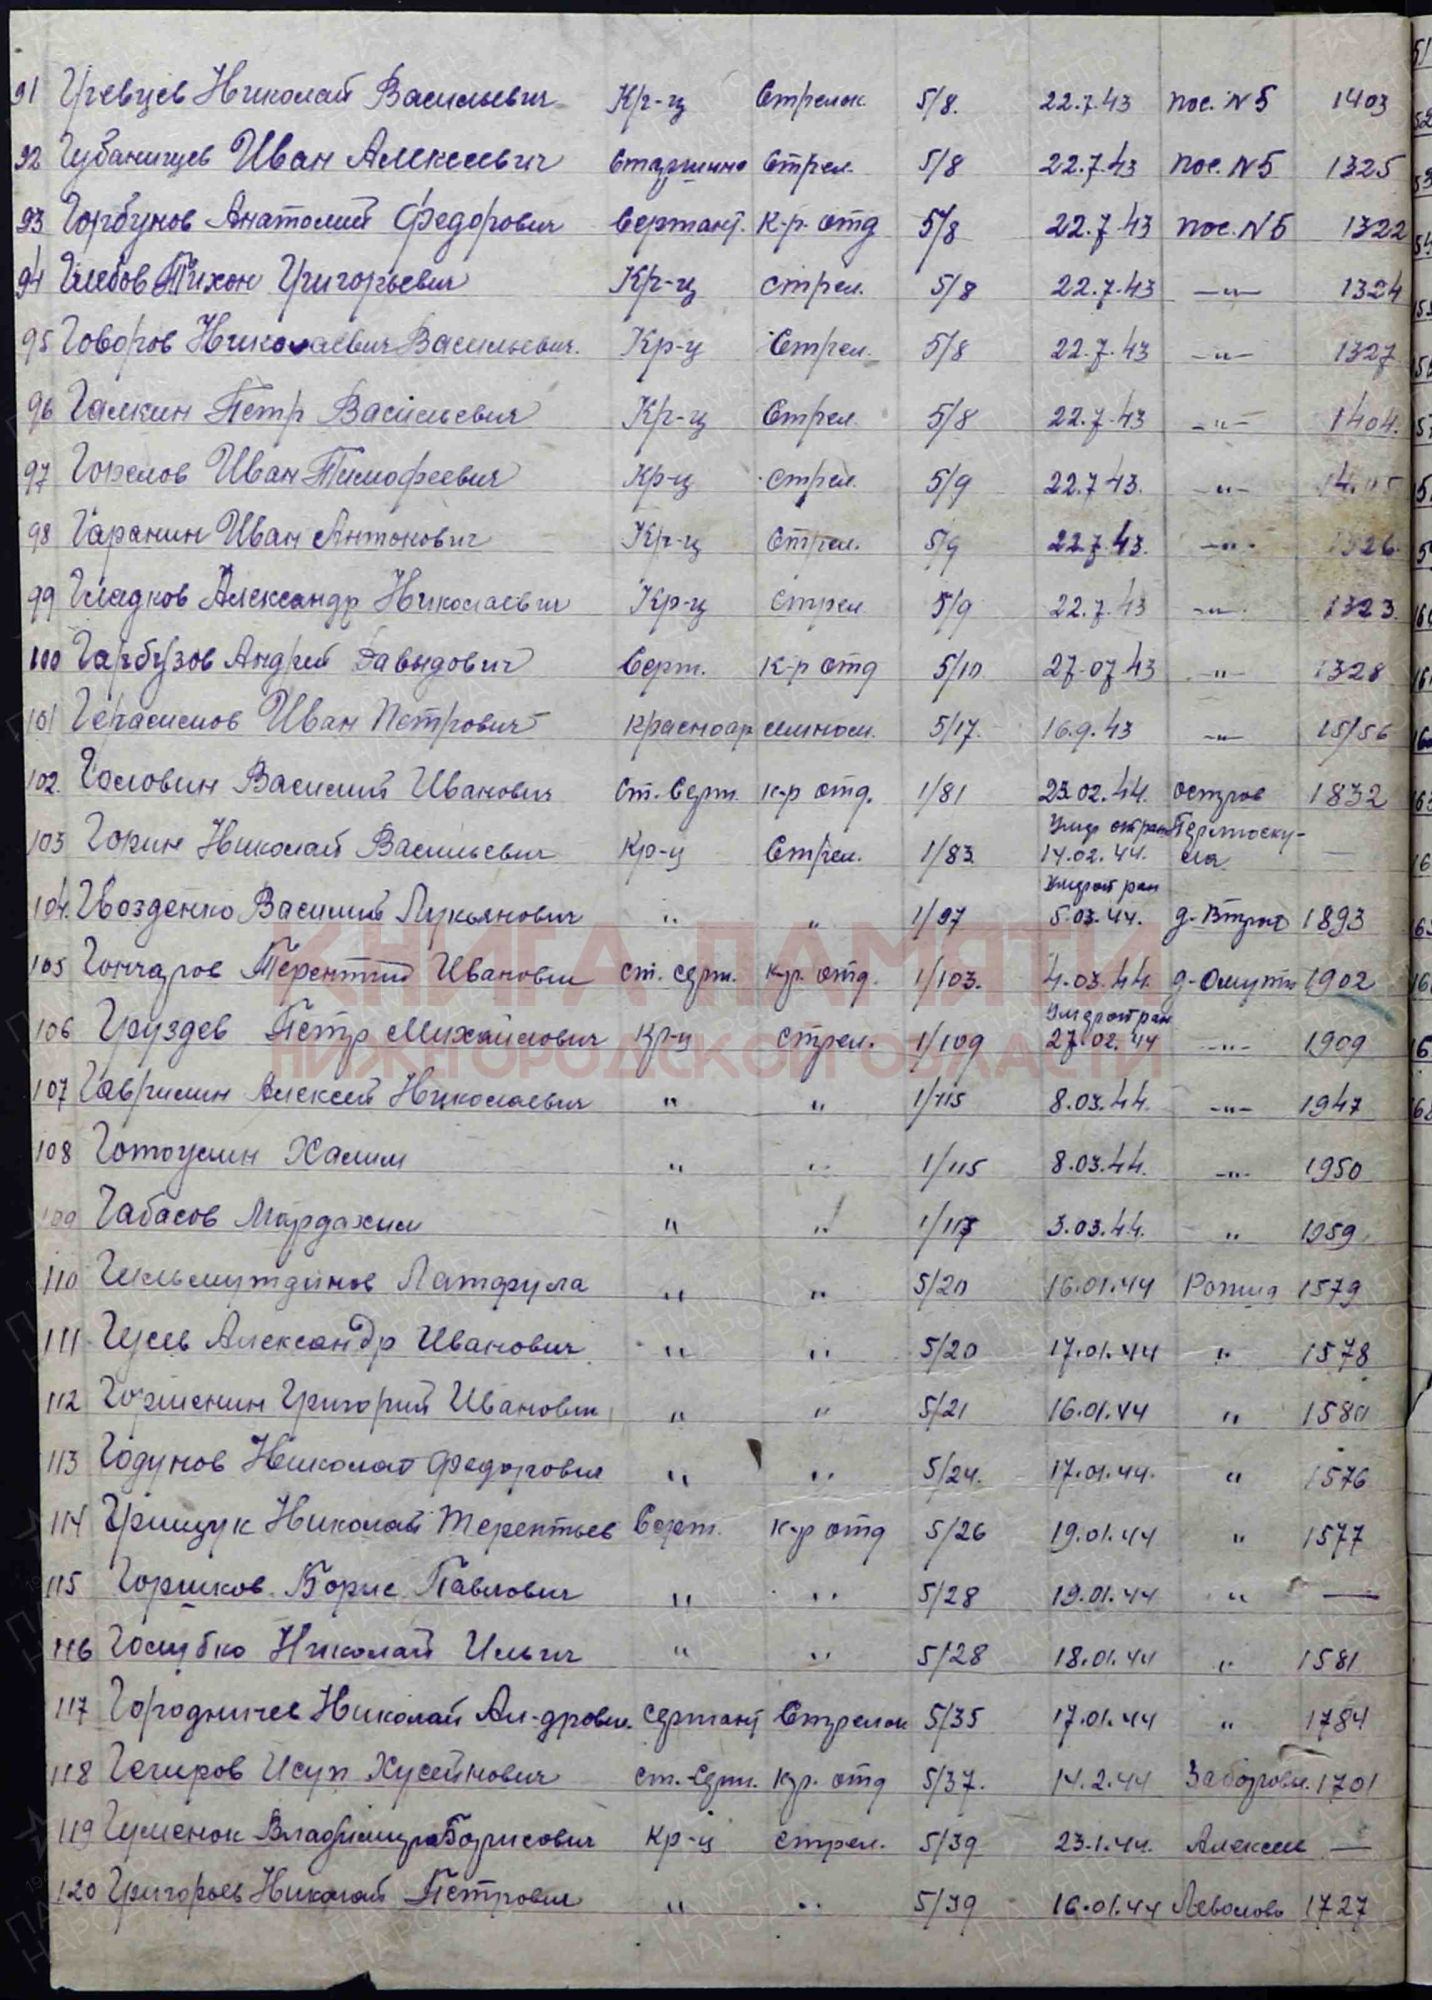 91 Гревцев Николай Васильевич Кр-ц Стрелок 5/8. 22.7.43 пос. N5 1403
92 Губанищев Иван Алексеевич Старшина Стрел. 5/8 22.7.43 пос. N5 1325
93 Горбунов Анатолий Федорович Сержант. К-р. отд 5/8 22.7.43 пос. N5 1322
94 Глебов Тихон Григорьевич Кр-ц стрел. 5/8 22.7.43 —"— 1324
95 Говоров Николаевич Васильевич. Кр-ц Стрел. 5/8 22.7.43 —"— 1327
96 Галкин Петр Васильевич Кр-ц Стрел. 5/8 22.7.43 —"— 1404.
97 Горелов Иван Тимофеевич Кр-ц стрел. 5/9 22.7.43. —"—
98 Гаранин Иван Антонович Кр-ц Стрел. 5/9 22.7.43. —"— 1326.
99 Гладков Александр Николаевич Кр-ц стрел. 5/9 22.7.43 —"— 1323
100 Гарбузов Андрей Давыдович Серж. К-р отд 5/10 27.07.43 —"— 1328
101 Герасимов Иван Петрович красноармейцем. 5/17. 16.9.43 —"— 15/56
102. Головин Василий Иванович Ст. Серж. к-р отд. 1/81 23.02.44. остров 1832
103 Горин Николай Васильевич Кр-ц Стрел. 1/83 Умер от ран 14.02.44. Пермоску-
ла —
104. Гвозденко Василий Лукьянович " " 1/97 Умер от ран 5.03.44. 1893
105 Гончаров Терентий Иванович ст. серж. к-р. отд. 1/103. 4.03.44. д. Омути 1902
106 Груздев Петр Михайлович Кр-ц стрел. 1/109 Умер от ран 27.02.44 —"— 1909
107 Гаврилин Алексей Николаевич " " 1/115 8.03.44. —"— 1947
108 Готоулин Халим " " 1/115 8.03.44. —"— 1950
109 Габасов Мардахим " " 1/117 3.03.44. " 1959.
110 Гильмутдинов Латфула " " 5/20 16.01.44 1579
111 Гусев Александр Иванович " " 5/20 17.01.44 " 1578
112 Горшенин Григорий Иванович " " 5/21 16.01.44 " 1580
113 Годунов Николай Федорович " " 5/24. 17.01.44. " 1576
114 Грищук Николай Терентьев Серж. к-р отд 5/26 19.01.44 " 1577
115 Горшков Борис Павлович " " 5/28 19.01.44 " —
116 Голубко Николай Ильич " " 5/28 18.01.44 " 1581
117 Городничев Николай Ал-дрович. сержант Стрелок 5/35 17.01.44 " 1784
118 Гегиров Исуп Хусейнович ст. Серж. к-р. отд 5/37. 14.2.44 Заборовье. 1701
119 Гуменюк Владимир Борисович Кр-ц стрел. 5/39 23.1.44. —
120 Григорьев Николай Петрович " " 5/39 16.01.44 Леволово 1727
КНИГА ПАМЯТИ
НИЖЕГОРОДСКОЙ ОБЛАСТИ